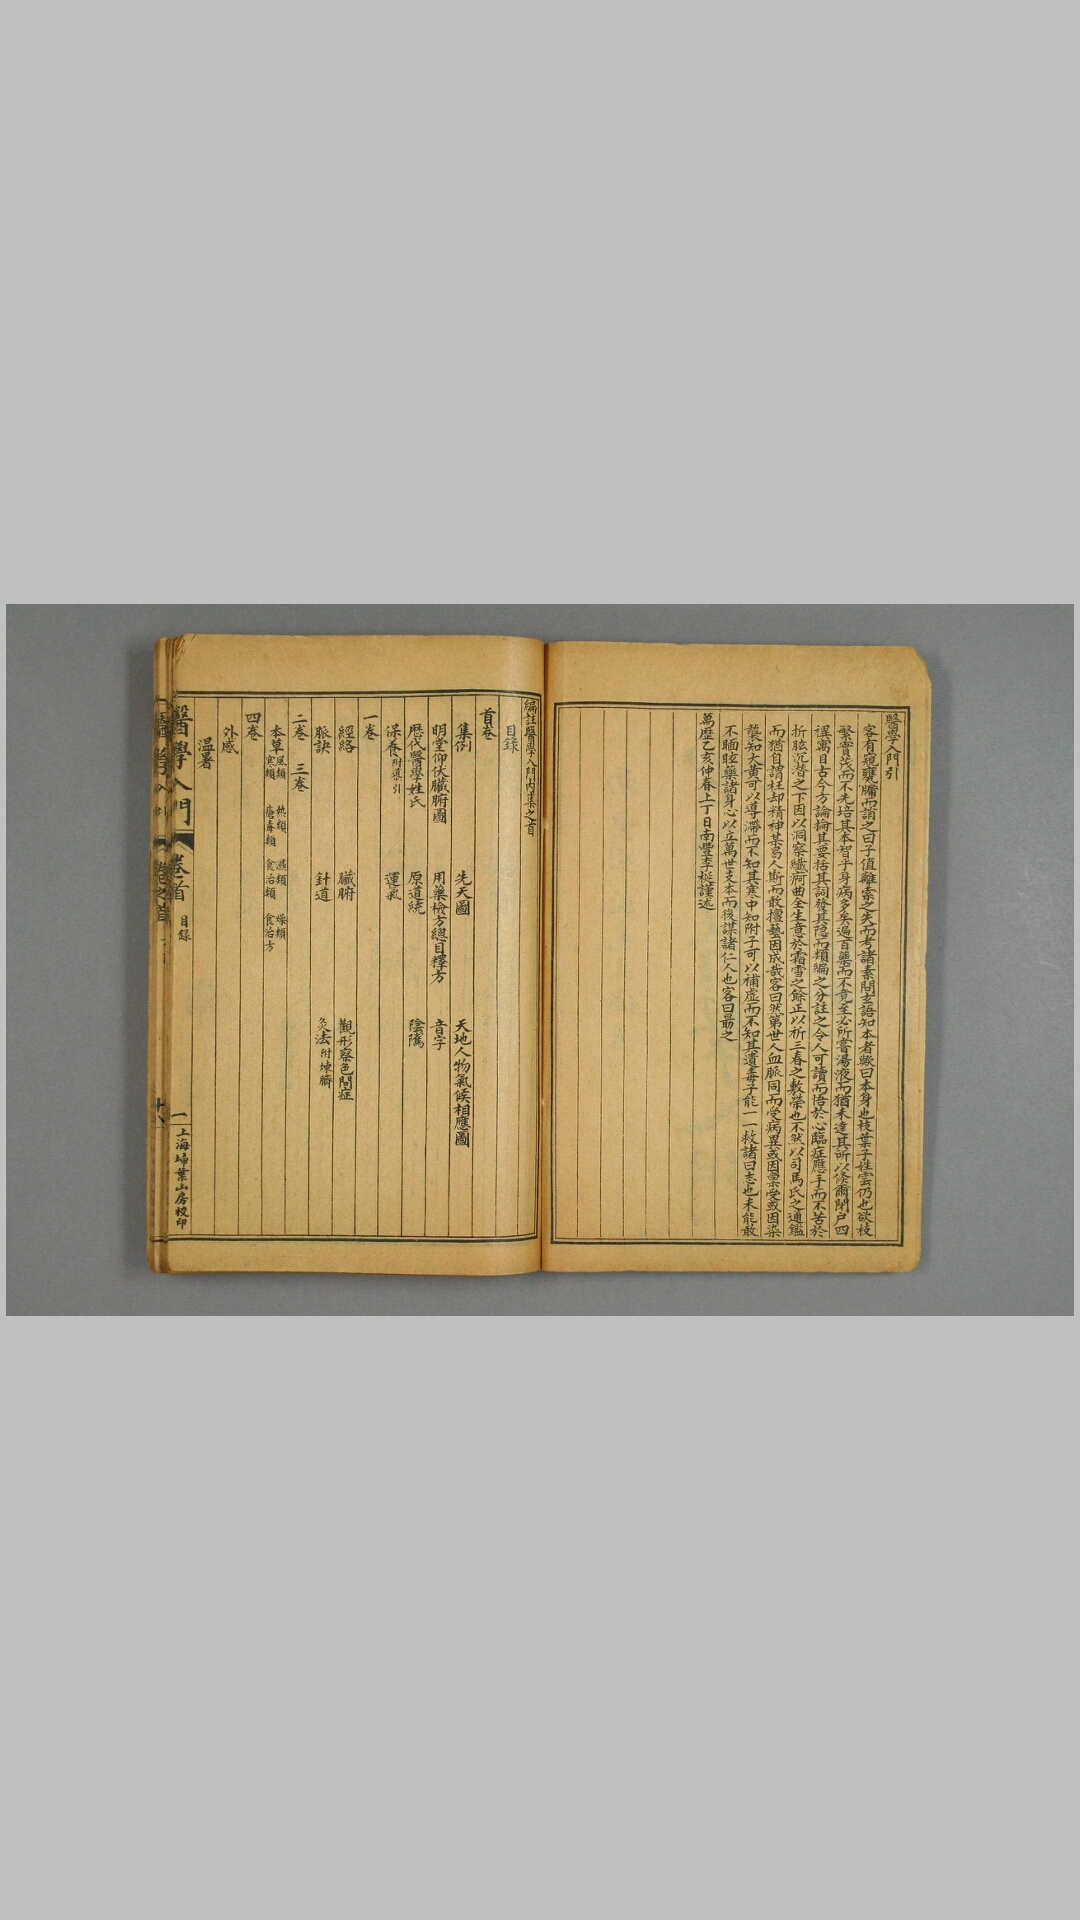 醫學入門引
客有窺甕牖而誚之曰子值離索之失而考諸素問玄語知本者歟曰本身也枝葉子姓雲仍也欲枝
繁實茂而不先培其本智乎身病多矣遍百藥而不竟至必所嘗湯液而猶未達其所以倏爾閉戶四
禩寓目古今方論掄其要括其詞發其隱而類編之分註之令人可讀而悟於心臨症應手而不苦於
折肱沉潜之下因以洞察纖疴曲全生意於霜雪之餘正以祈三春之敷榮也不然以司馬氏之通鑑
而猶自謂枉却精神某曷人斯而敢擅藝因成哉客曰然第世人血脈同而受病異或因稟受或因染
襲知大黃可以導滯而不知其寒中知附子可以補虛而不知其遺毒子能一一救諸曰志也未能敢
不瞑眩藥諸身心以立萬世支本而後謀諸仁人也客曰最之
萬歷乙亥仲春上丁日南豐李梴謹述
編註醫學入門內集之首
目錄
首卷
集例 先天圖 天地人物氣候相應圖
明堂仰伏臟腑圖 用藥檢方總目釋方 音字
歷代醫學姓氏 原道統 陰隲
保養附導引 運氣
一卷
經絡 臟腑 觀形察色問症
脈訣 針道 灸法附煉臍
二卷 三卷
本草風類 熱類 濕類 燥類
寒類 瘡毒類 食治類 食治方
四卷
外感
溫暑
醫學入門 卷首 目錄 一 上海埽葉山房校印